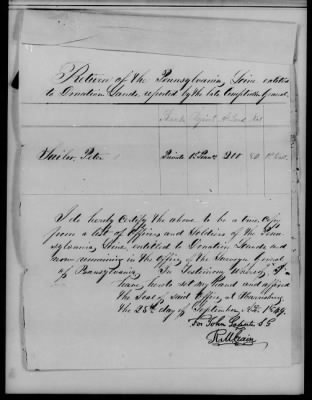 Return of the Pennsylvania Line entitled
to Donation Lands, reported by the late Comptroller General.
Sailor, Peter Private 200
I do hereby Certify the above to be a true Copy
from a list of Officers and Soldiers of the Penn-
sylvania Line, entitled to Donation Lands and
now remaining in the Office of the Surveyor General
of Pennsylvania. In Testimony whereof, I
have hereto set my Hand and affixed
the Seal of said Office, at Harrisburg
the 25th day of September, A.D. 1849.
For John S.G.